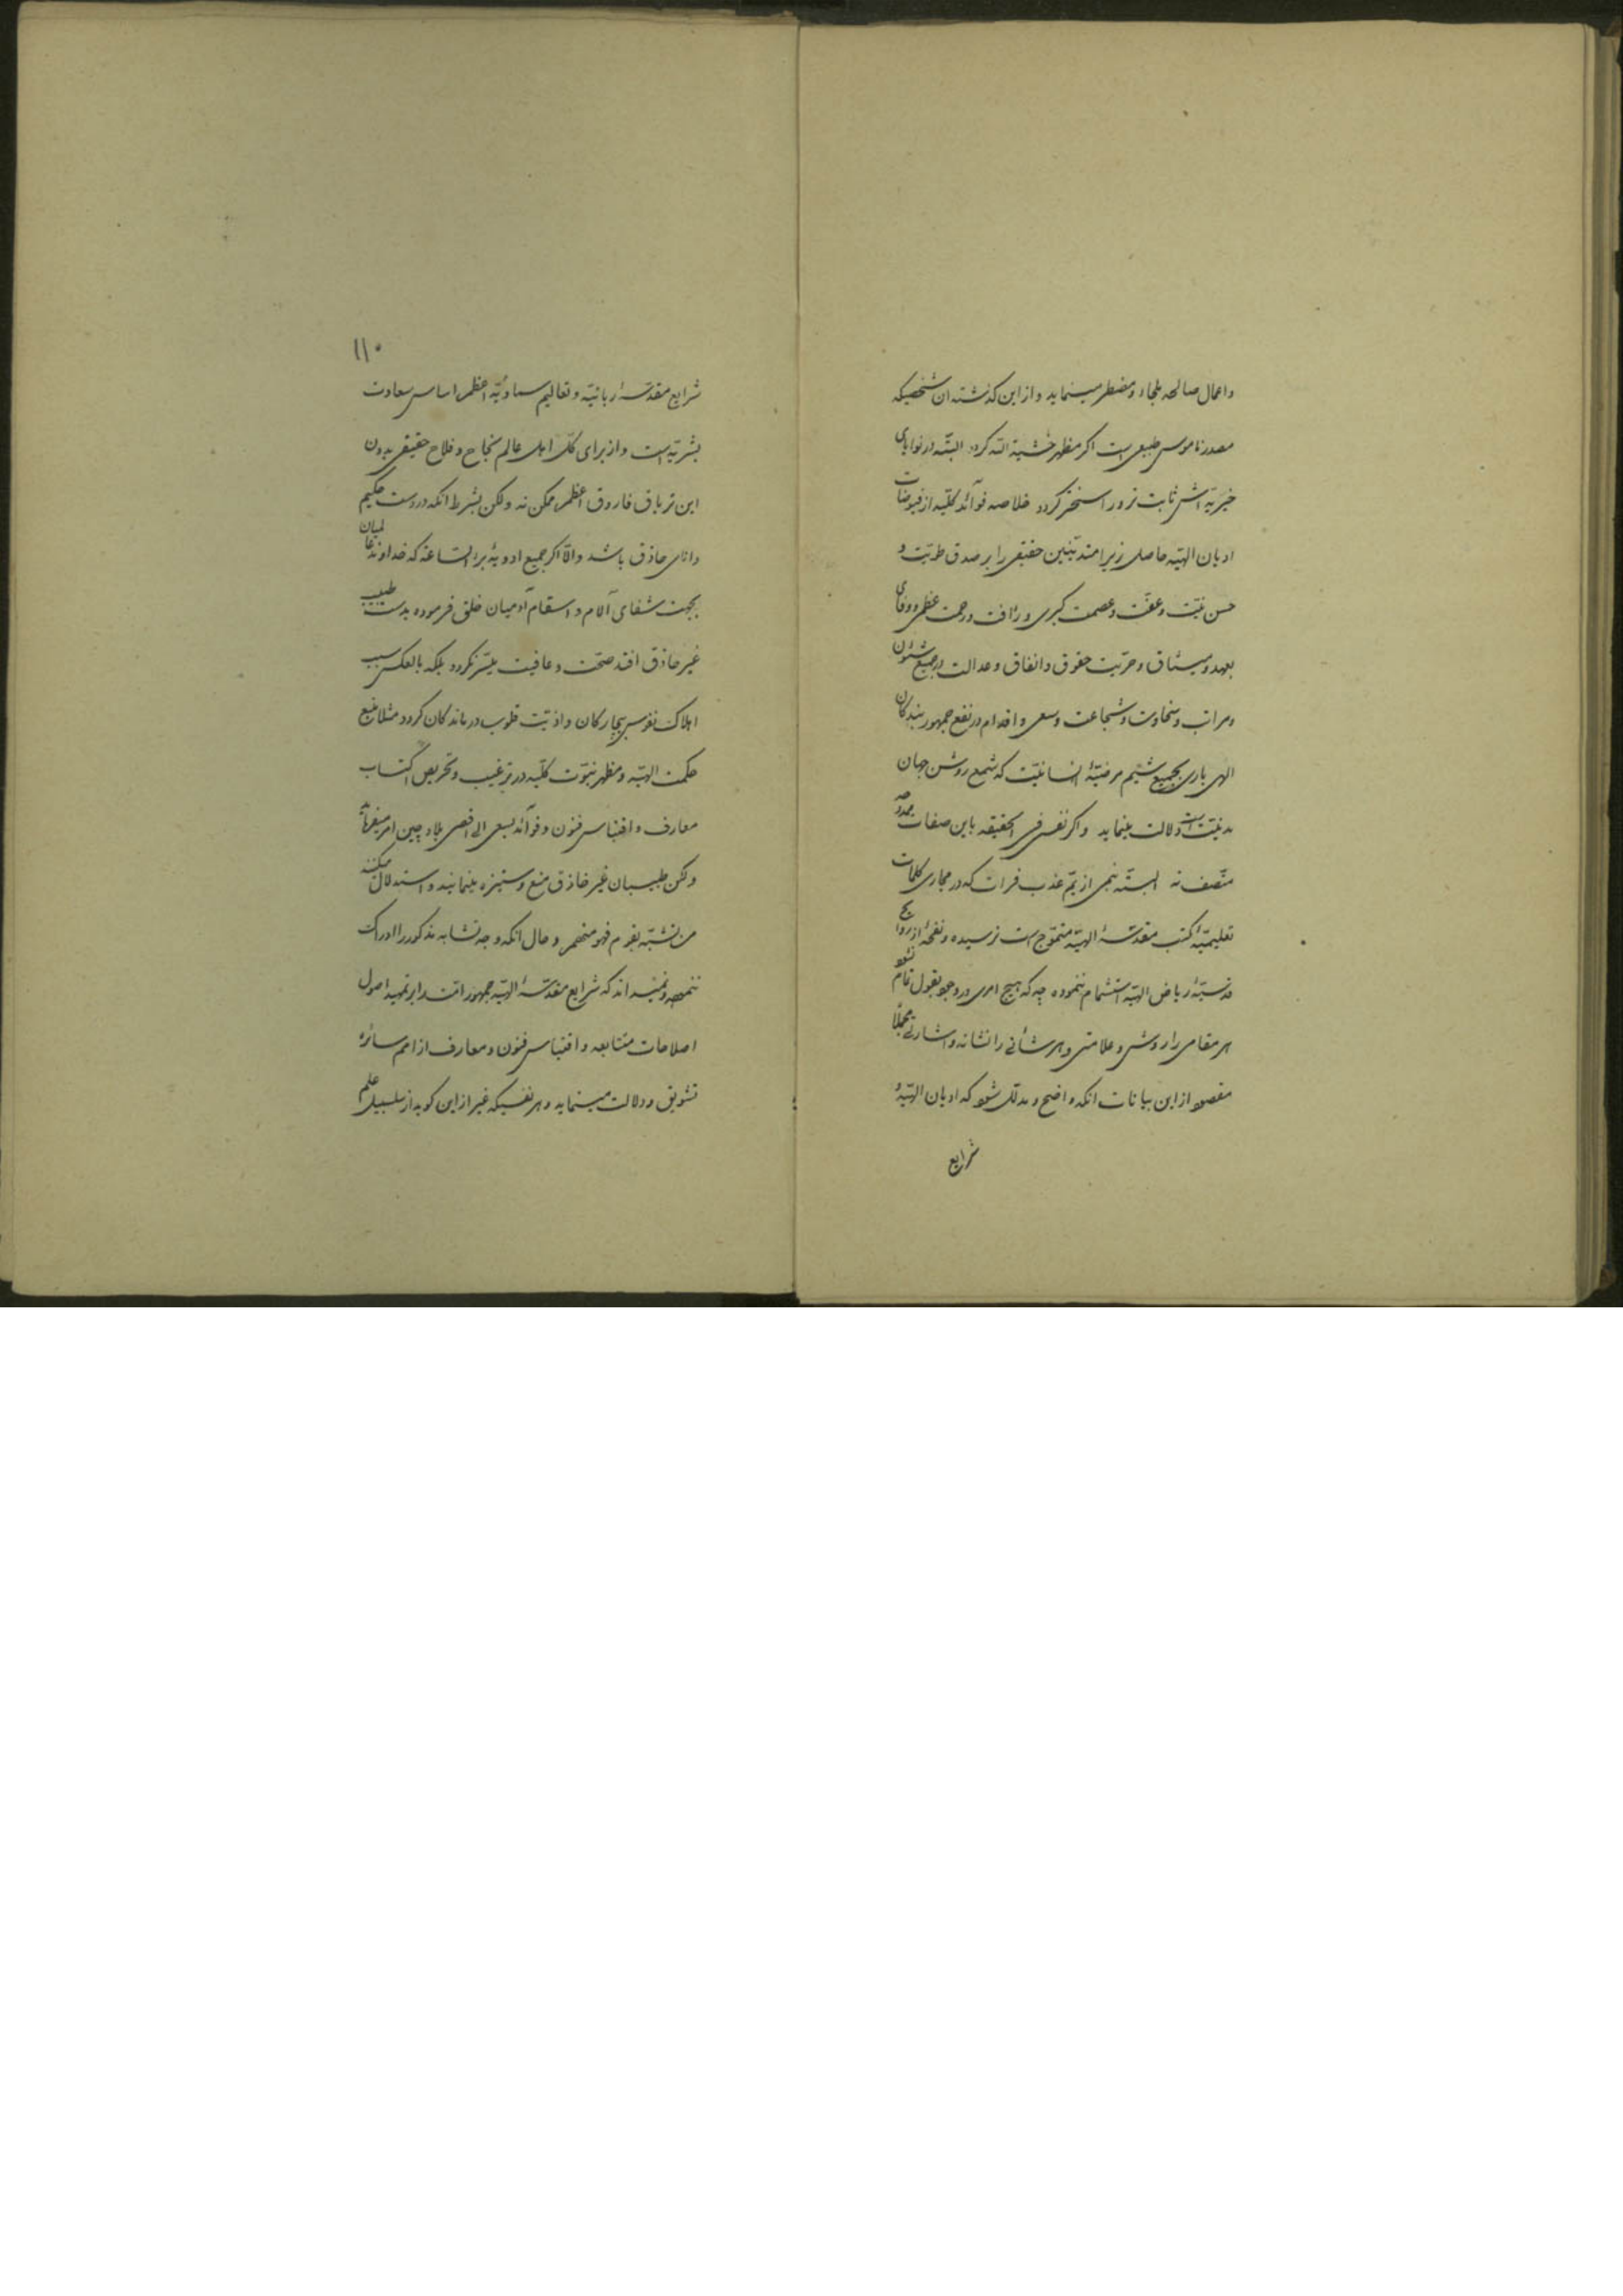 واعمال صالحه ملجاء ومضطر مینماید واز این کذشته ان شخصیکه
مصدر ناموس طبیعی است اکر مظهر خشیة الله کردد البتّه در نوایای
خیریّه اش ثابت تر وراسختر کردد خلاصه فوآئد کلّیه از فیوضات
ادیان الهیّه حاصل زیرا متدیّنین حقیقی را بر صدق طویّت و
حسن نیّت وعفّت وعصمت کبری ورأفت ورحمت عظمی ووفای
بعهد ومیثاق وحرّیت حقوق وانفاق وعدالت در جمیع شئون
ومراتب وسخاوت وشجاعت وسعی واقدام در نفع جمهور بندکان
الهی باری بجمیع شیم مرضیّهٔ انسانیّت که شمع روشن جهان
مدنیّت است دلالت مینماید واکر نفسی فی الحقیقه باین صفات ممدوحه
متّصف نه البتّه بنمی از یمّ عذب فرات که در مجاری کلمات
تعلیمیّهٔ کتب مقدّسهٔ الهیّه متموّج است نرسیده ونفحهٔ از روایح
قدسیّهٔ ریاض الهیّه استشمام ننموده چه که هیچ امری در وجود بقول تمام نشود
هر مقامی را روشی وعلامتی وهر شأنی را نشانه واشارتی مجملاً
مقصود از این بیانات انکه واضح ومدلّل شود که ادیان الهیّهٔ و
شرایع
۱۱۰
شرایع مقدّسهٔ ربانیّه وتعالیم سماویّه اعظم اساس سعادت
بشریّه است واز برای کلّ اهل عالم نجاح وفلاح حقیقی بدون
این تریاق فاروق اعظم ممکن نه ولکن بشرط انکه در دست حکیم
دانای حاذق باشد والّا اکر جمیع ادویهٔ برء الساعة که خداوند عالمیان
بجهت شفای آلام واسقام آدمیان خلق فرموده بدست طبیب
غیر حاذق افتد صحّت وعافیت میسّر نکردد بلکه بالعکس سبب
اهلاک نفوس بیچارکان واذیّت قلوب درماندکان کردد مثلا منبع
حکمت الهیّه ومظهر نبوّت کلّیه در ترغیب وتحریص اکتساب
معارف واقتباس فنون وفوآئد بسعی الی اقصی بلاد چین امر میفرماید
ولکن طبیبان غیر حاذق منع وستیزه مینمایند واستدلال میکنند
من تشبّه بقوم فهو منهم وحال انکه وجه تشابه مذکور را ادراک
ننموده ونمیدانند که شرایع مقدّسهٔ الهیّه جمهور امّت را بر تمهید اصول
اصلاحات متتابعه واقتباس فنون ومعارف از امم سائره
تشویق ودلالت مینماید وهر نفسیکه غیر از این کوید از سلسبیل علم